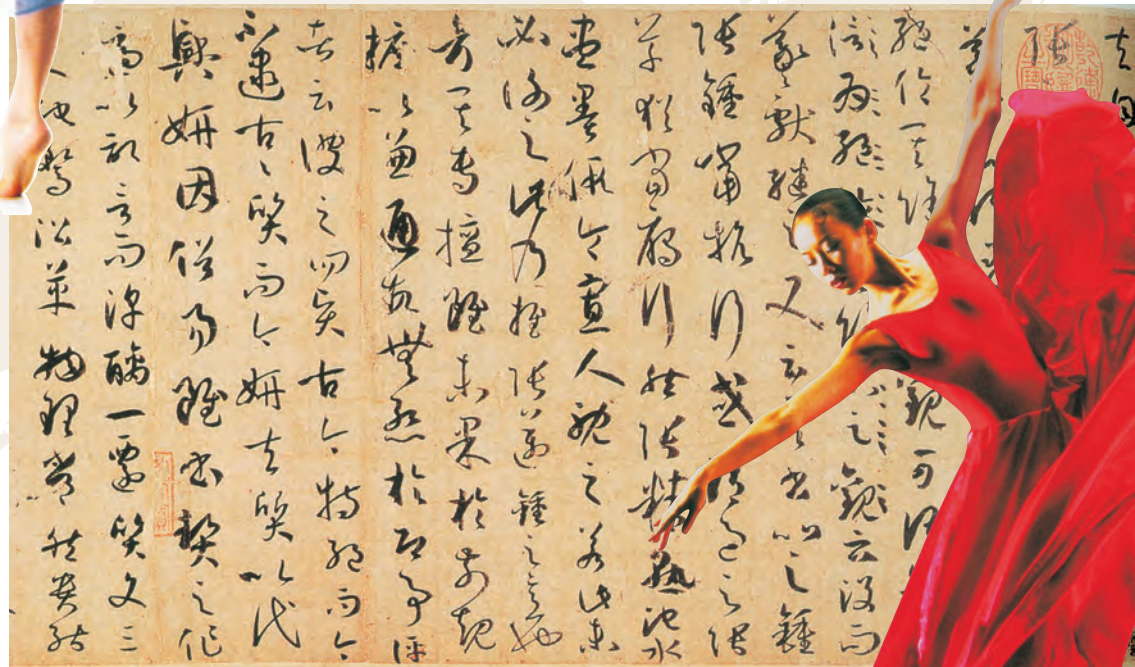 夫自
張
絕倫其 觀可謂
云沒而
羲獻繼 又云 書比之鍾
張鍾當抗行或謂過之張
草猶當雁行然張精熟池水
盡墨假令寡人耽之若此未
必謝之此乃推張邁鍾之意也
考其專擅雖未果於前規
摭以兼通故無慚於即事評
者云彼之四賢古今特絕而今
不逮古古質而今妍夫質以代
興妍因俗易雖書契之作
適以記言而淳醨一遷質文三
馳騖沿革物理常然貴能